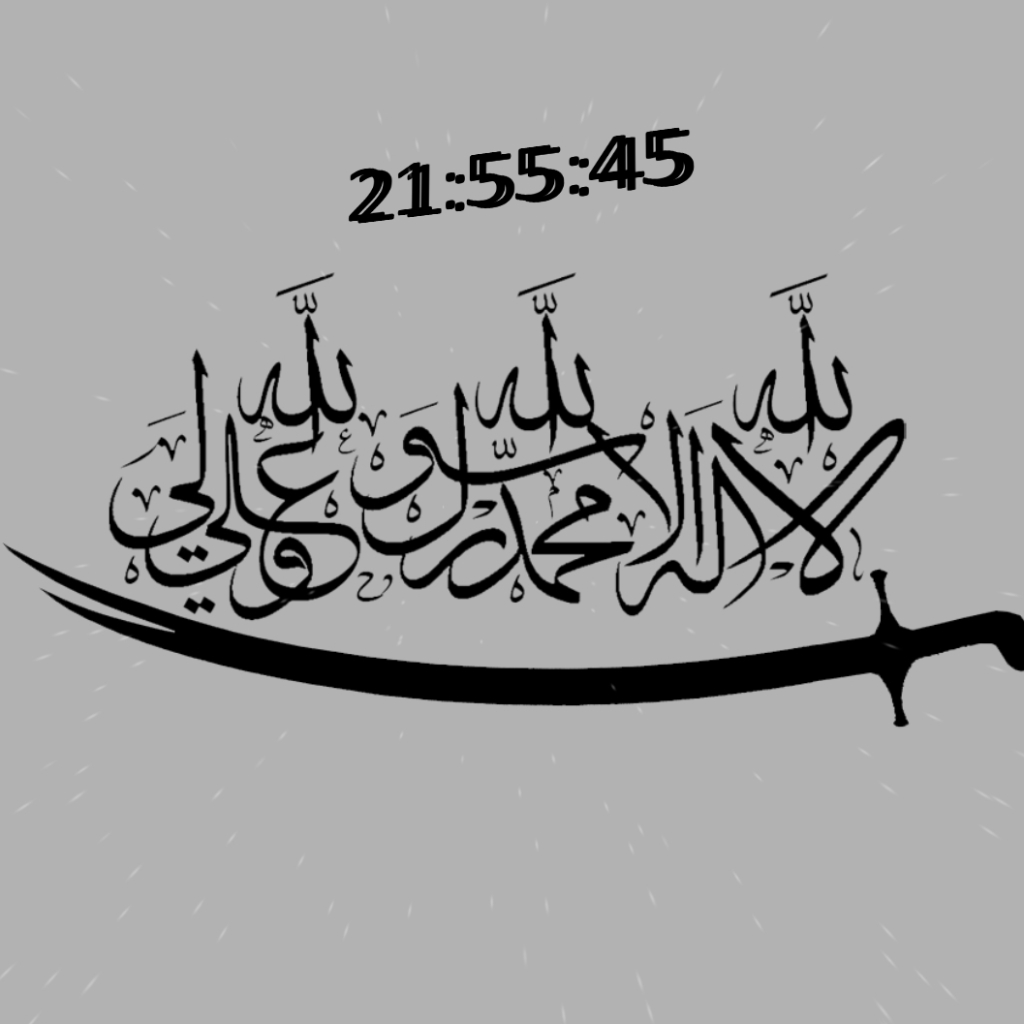 21:55:45
لا اله الا الله محمد رسول الله و علي ولي الله